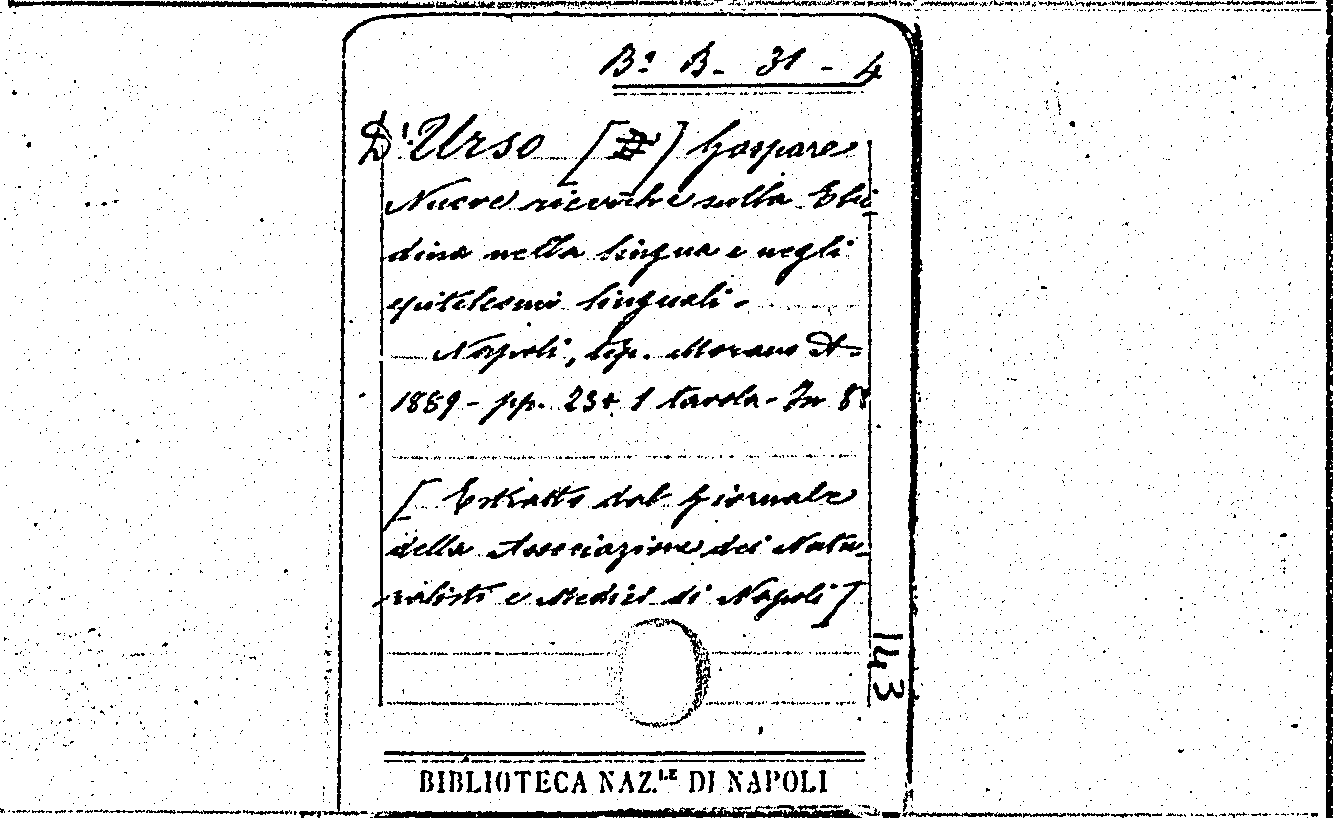 Bª B. 31 - 4
D'Urso [D'] Gaspare
Nuove ricerche sulla Elei
dina nella lingua e negli
epiteliomi linguali.
Napoli, tip. Morano A.
1889 - pp. 23 + 1 tavola - In 8º
[Estratto dal Giornale
della Associazione dei Natu-
ralisti e Medici di Napoli]
143
BIBLIOTECA NAZ.LE DI NAPOLI